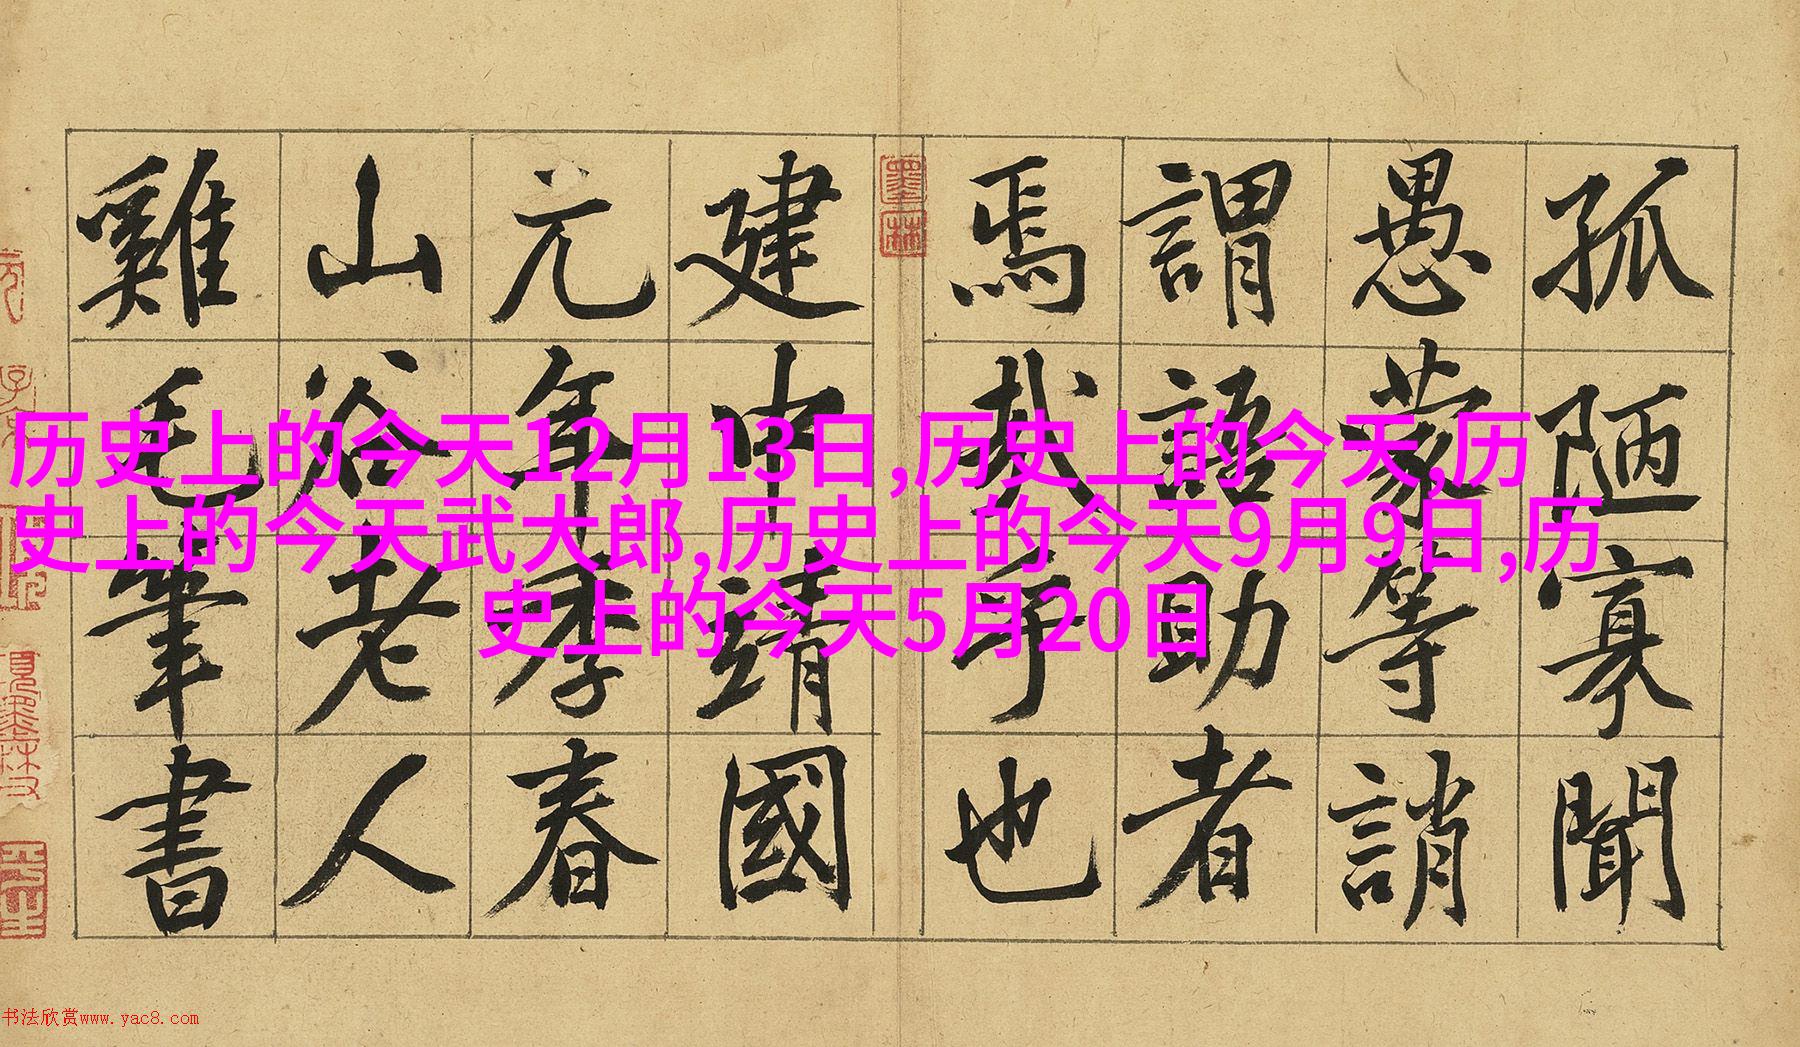 孤陋寡聞
愚蒙等誚
謂語助者
焉哉乎也
建中靖國
元年季春
山谷老人
雞毛筆書
墨林
历史上的今天12月13日,历史上的今天,历
史上的今天武大郎,历史上的今天9月9日,历
史上的今天5月20日
书法欣赏www.yac8.com